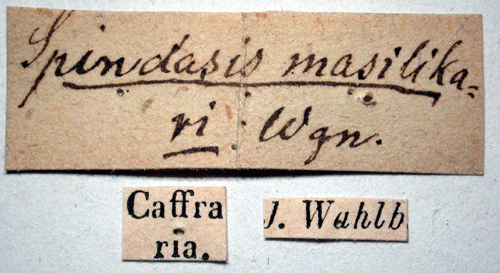 Spindasis masilika=
ri Wgn.
Caffra
ria.
J. Wahlb